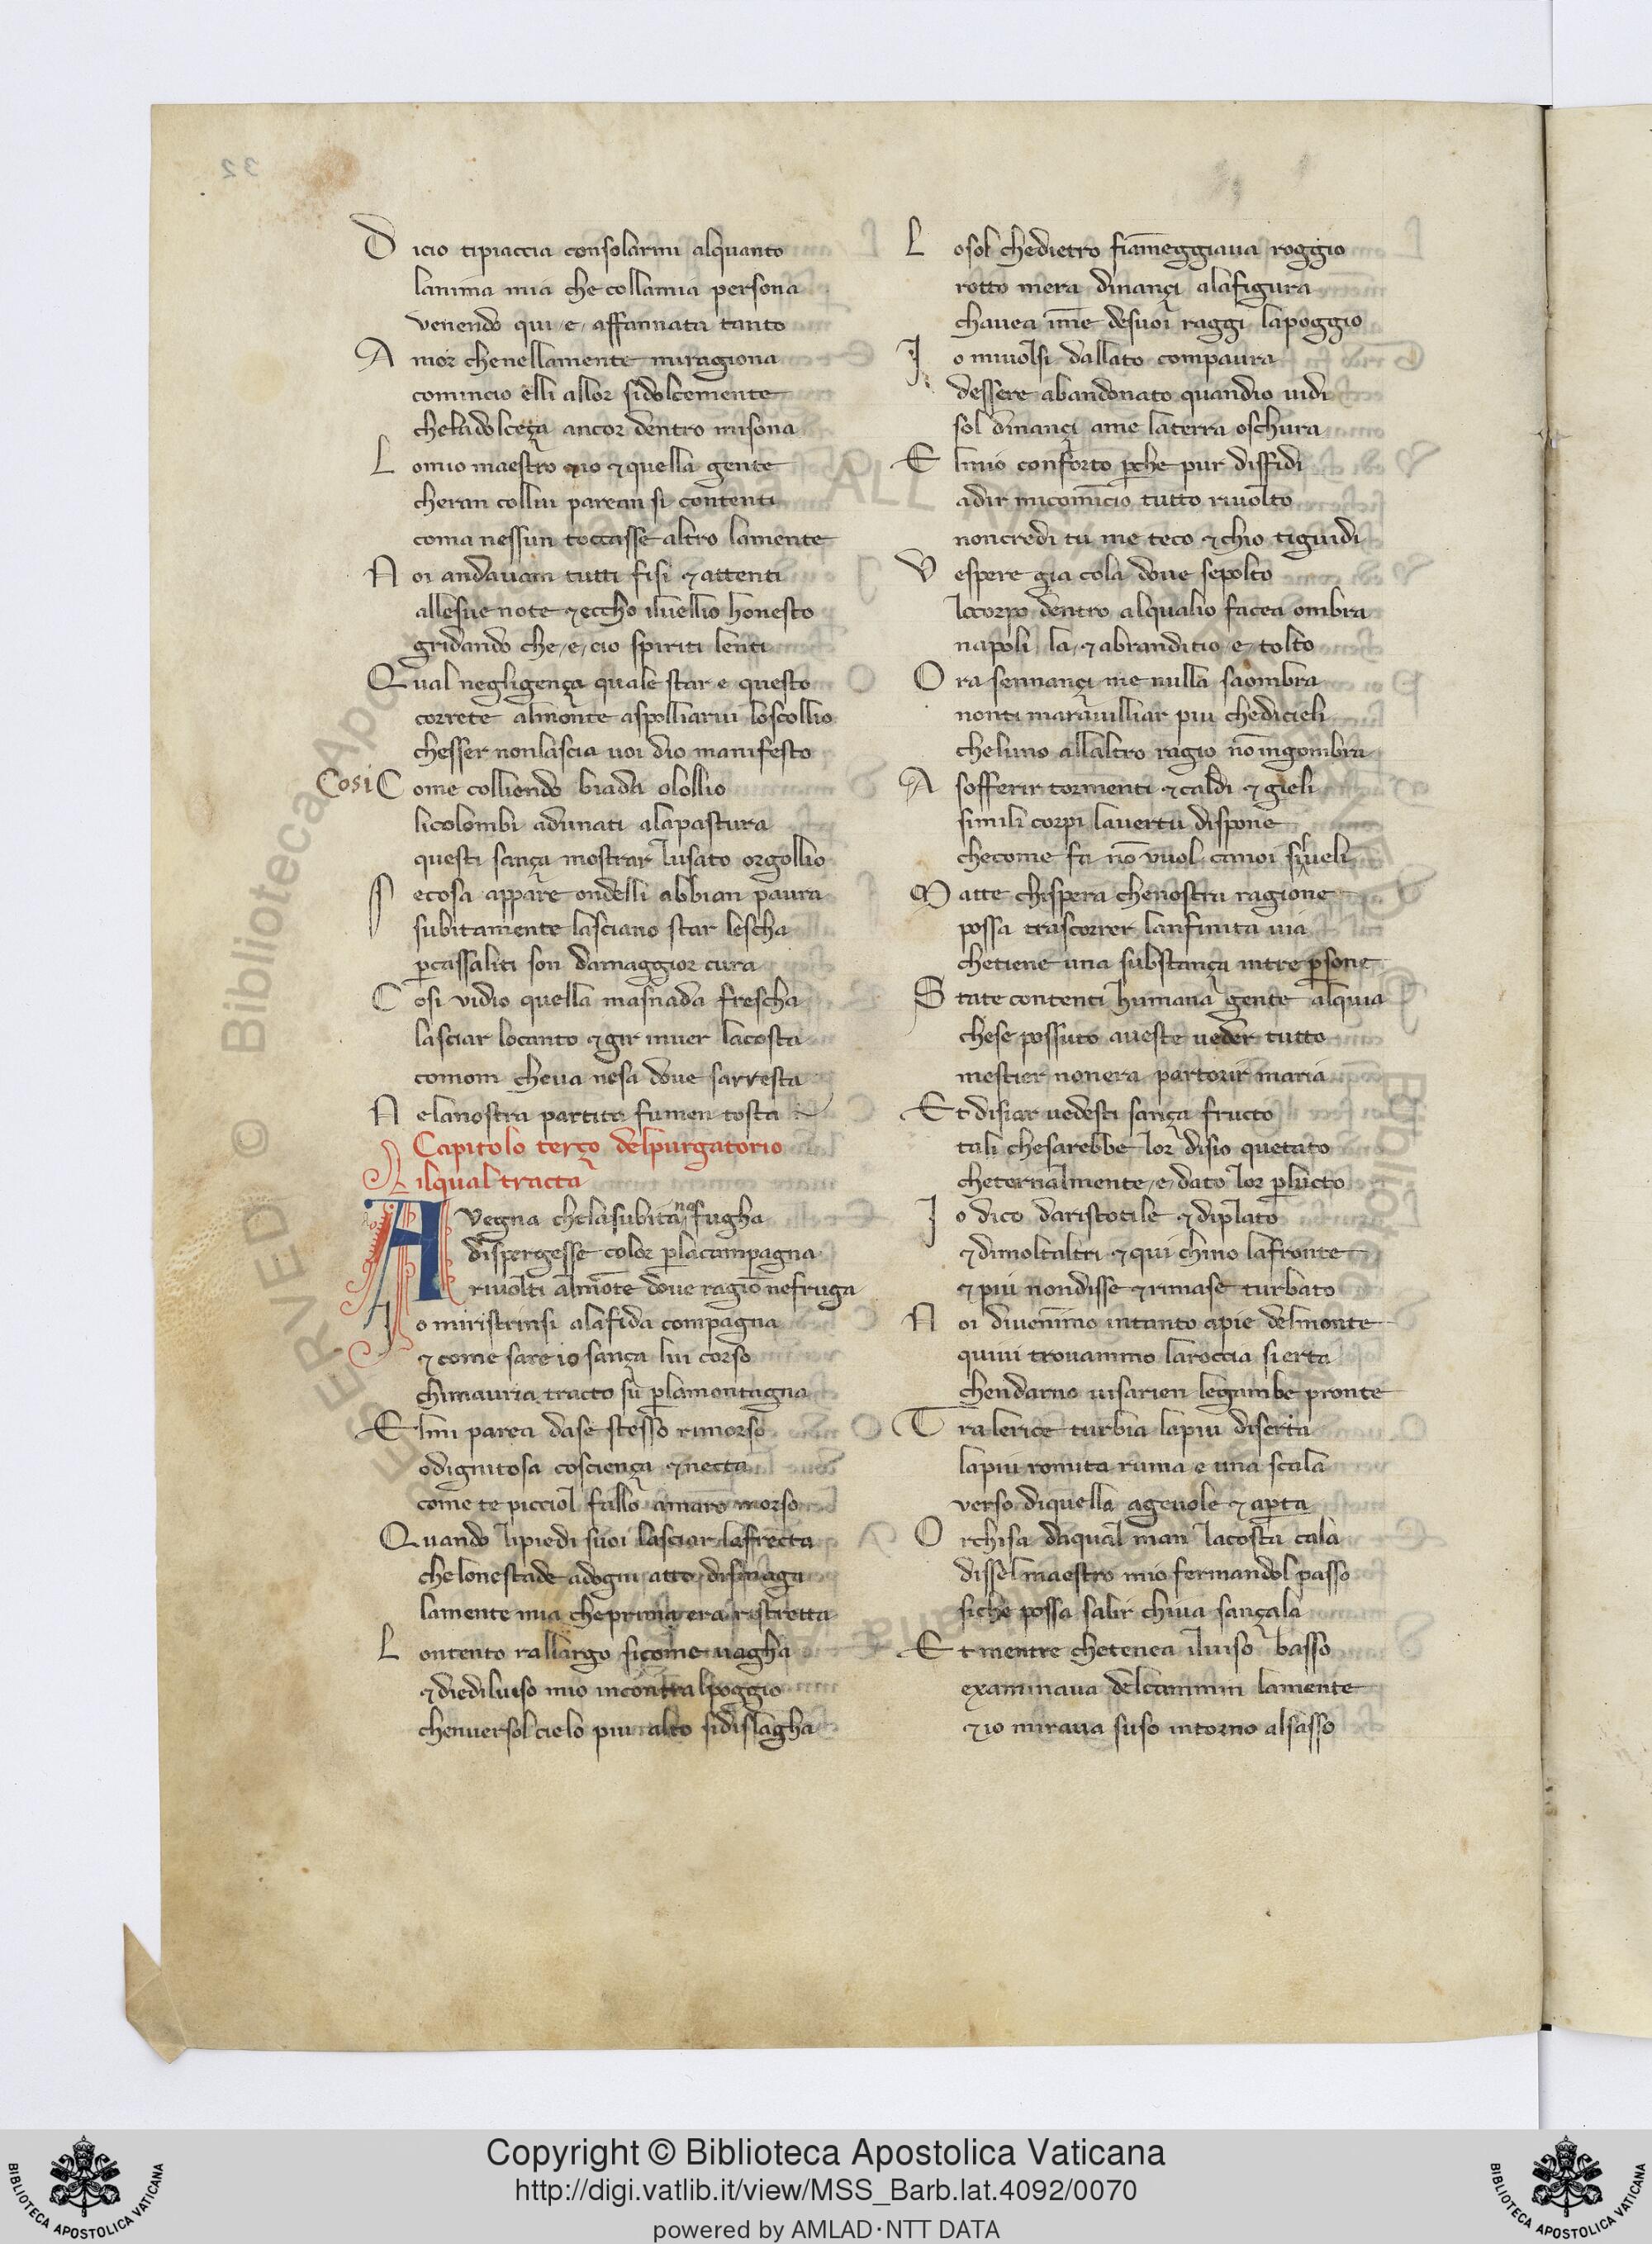 D icio tipiaccia consolarmi alquanto
lanima mia che collamia persona
venendo qui e affannata tanto
A mor chenellamente miragiona
comincio elli allor sidolcemente
cheladolceça ancor dentro misona
L omio maestro 7 io 7 quella gente
cheran collui parean si contenti
coma nessun toccasse altro lamente
N oi andauam tutti fisi 7 attenti
allesue note 7 eccho iluellio honesto
gridando che e cio spiriti lenti
Qual negligença quale star e questo
correte almonte aspolliarui loscollio
chesser nonlascia uoi dio manifesto
Cosi C ome colliendo biada olollio
licolombi adunati alapastura
questi sança mostrar lusato orgollio
S ecosa appare ondelli abbian paura
subitamente lasciano star lescha
p̄cassaliti son damaggior cura
C osi vidio quella masnada frescha
lasciar locanto 7 gir inuer lacosta
comom cheua nesa doue sarresta
N elanostra partita fumen tosta
Capitolo terço delpurgatorio
ilqual tracta
A vegna chelasubitana fugha
dispergesse color p̄lacampagna
riuolti almōte doue ragiō nefruga
I o miristrinsi alafida compagna
7 come sare io sança lui corso
chimauria tracto su p̄lamontagna
E lmi parea dase stesso rimorso
odignitosa cosciença 7 necta
come te picciol fallo amaro morso
Quando lipiedi suoi lasciar lafrecta
chelonestade adogni atto dismaga
lamente mia cheprima era ristretta
L ontento rallargo sicome uagha
7 diediluiso mio incontralpoggio
chenuersol cielo piu alto sidislagha
L osol chedietro fiām̄eggiaua roggio
rotto mera dinançi alafigura
chauea im̄e desuoi raggi lapoggio
I o miuolsi dallato compaura
dessere abandonato quandio uidi
sol dinançi ame laterra oschura
E lmio conforto p̄che pur diffidi
adir micom̄icio tutto riuolto
noncredi tu me teco 7 chio tiguidi
V espere gia cola doue sepolto
locorpo dentro alqualio facea ombra
napoli la 7 abranditio e tolto
O ra sennançi me nulla saombra
nonti marauilliar piu chedicieli
cheluno allaltro ragio nō ingombra
A sofferir tormenti 7 caldi 7 gieli
simili corpi lauertu dispone
checome fa nō vuol canoi si sueli
M atte chispera chenostra ragione
possa trascorrer lanfinita uia
chetiene una substança intre p̄sone
S tate contenti humana gente alquia
chese possuto aueste ueder tutto
mestier nonera partorir maria
E t disiar uedesti sança fructo
tali chesarebbe lor disio quetato
cheternalmente e dato lor p̄lucto
I o dico daristotile 7 diplato
7 dimoltaltri 7 qui chino lafronte
7 piu nondisse 7 rimase turbato
N oi diuenīmo intanto apie delmonte
quiui trouammo laroccia si erta
chendarno uisarien legambe pronte
T ralerice turbia lapiu diserta
lapiu romita ruina e una scala
verso diquella ageuole 7 ap̄ta
O rchisa daqual man lacosta cala
dissel maestro mio fermandol passo
siche possa salir chiua sançala
E t mentre chetenea iluiso basso
examinaua delcammin lamente
7 io miraua suso intorno alsasso
Copyright © Biblioteca Apostolica Vaticana
http://digi.vatlib.it/view/MSS_Barb.lat.4092/0070
powered by AMLAD·NTT DATA
BIBLIOTECA APOSTOLICA VATICANA
BIBLIOTECA APOSTOLICA VATICANA